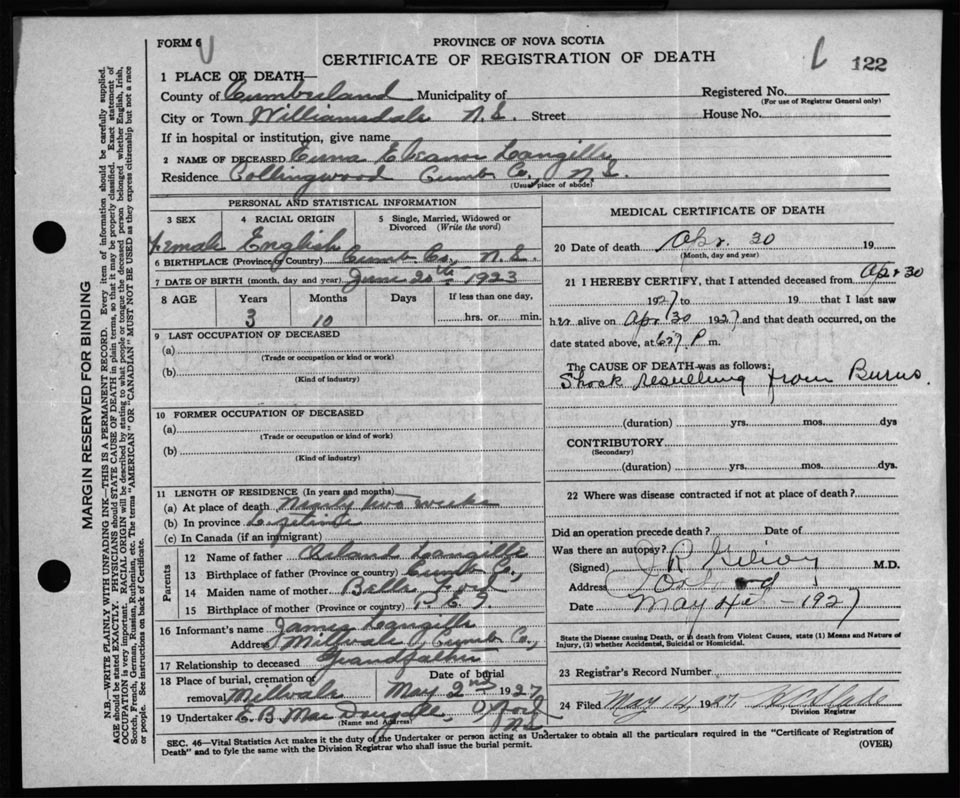 FORM 6
PROVINCE OF NOVA SCOTIA
CERTIFICATE OF REGISTRATION OF DEATH
122
1 PLACE OF DEATH—
County of Cumberland Municipality of
Registered No.
(For use of Registrar General only)
City or Town Williamsdale N.S. Street
House No.
If in hospital or institution, give name
2 NAME OF DECEASED Langille
Residence Collingwood Cumb Co., N.S.
(Usual place of abode)
PERSONAL AND STATISTICAL INFORMATION
3 SEX
4 RACIAL ORIGIN
5 Single, Married, Widowed or Divorced (Write the word)
Female English
6 BIRTHPLACE (Province or Country) Cumb. Co., N.S.
7 DATE OF BIRTH (month, day and year) June 20th 1923
8 AGE
Years
Months
Days
If less than one day,
3
10
hrs. or min.
9 LAST OCCUPATION OF DECEASED
(a)
(Trade or occupation or kind or work)
(b)
(Kind of industry)
10 FORMER OCCUPATION OF DECEASED
(a)
(Trade or occupation or kind of work)
(b)
(Kind of industry)
11 LENGTH OF RESIDENCE (In years and months)
(a) At place of death Nearly two weeks
(b) In province Lifetime
(c) In Canada (if an immigrant)
Parents
12 Name of father Langille
13 Birthplace of father (Province or country) Cumb Co.,
14 Maiden name of mother Bella
15 Birthplace of mother (Province or country) P.E.I.
16 Informant's name James Langille
Address Millvale, Cumb Co.,
17 Relationship to deceased Grandfather
18 Place of burial, cremation or removal Millvale
Date of burial
May 2nd 1927
19 Undertaker E B MacDougall, Oxford N.S.
(Name and Address)
MEDICAL CERTIFICATE OF DEATH
20 Date of death Apr. 30 19
(Month, day and year)
21 I HEREBY CERTIFY, that I attended deceased from Apr 30
1927 to 19 that I last saw
her alive on Apr 30 1927 and that death occurred, on the
date stated above, at P m.
The CAUSE OF DEATH was as follows:
Shock resulting from Burns.
(duration) yrs. mos. dys
CONTRIBUTORY
(Secondary)
(duration) yrs. mos. dys.
22 Where was disease contracted if not at place of death?
Did an operation precede death? Date of
Was there an autopsy?
(Signed) M.D.
Address Oxford
Date May 1927
State the Disease causing Death, or in death from Violent Causes, state (1) Means and Nature of
Injury, (2) whether Accidental, Suicidal or Homicidal.
23 Registrar's Record Number
24 Filed May 19
Division Registrar
SEC. 46—Vital Statistics Act makes it the duty of the Undertaker or person acting as Undertaker to obtain all the particulars required in the "Certificate of Registration of
Death" and to fyle the same with the Division Registrar who shall issue the burial permit.
(OVER)
MARGIN RESERVED FOR BINDING
N.B.—WRITE PLAINLY WITH UNFADING INK—THIS IS A PERMANENT RECORD. Every item of information should be carefully supplied.
AGE should be stated EXACTLY. PHYSICIANS should STATE CAUSE OF DEATH in plain terms, so that it may be properly classified. Exact statement of
OCCUPATION is very important. RACIAL ORIGIN will be described by stating to what people or tongue the deceased person belonged whether English, Irish,
Scotch, French, German, Russian, Ruthenian, etc. The terms "AMERICAN" OR "CANADIAN" MUST NOT BE USED as they express citizenship but not a race
or people. See instructions on back of Certificate.